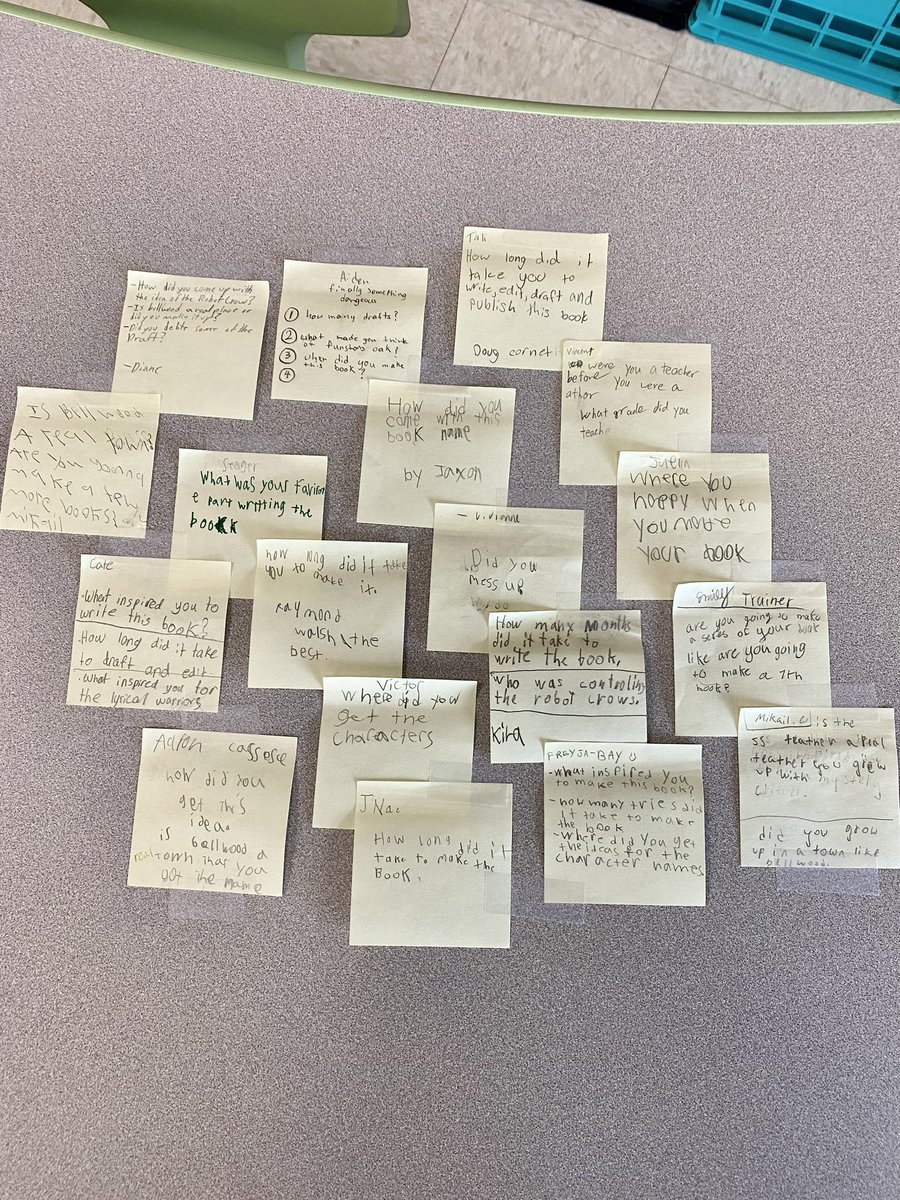 Tali
How long did it
take you to
write, edit, draft and
publish this book
Doug cornett
-How did you come up with
the idea of the Robot Crows?
-Is bellwood a real place or
did you make it up?
-Did you delete some of the
Draft?
-Diane
Aiden
finally something
dangerous
1 how many drafts?
2 what made you think
of funstons oak?
3 when did you make
this book?
4
Vincent
were you a teacher
before you were a
athor
What grade did you
teache
Is Bellwood
A real town?
Are you gonna
make a few
more books?
mikail
How did you
come with this
book name
by Jaxon
What was your favirot
e part writting the
bookk
Where you
happy when
you made
your book
- Vivienne
Did you
mess up
how long did it take
you to make
it.
Raymond
walsh the
best.
Cate
.What inspired you to
write this book?
.How long did it take
to draft and edit
.what inspired you for
the lyrical warriors
Emily Trainer
are you going to make
a seres of your book
like are you going
to make a 7th
book?
How many months
did it take to
write the book.
who was controling
the robot crows.
Kira
Victor
where did you
get the
characters
Mikail. is the
ss teather a real
teather you grew
up with
did you grow
up in a town like
bellwood.
Aaron
how did you
get this
idea.
is bellwood a
real town that you
got the name
FREYJA-BAY
-what inspired you
to make this book?
-how many tries did
it take to make
the book
-where did you get
the ideas for the
character names
JNac
How long did it
take to make the
Book.